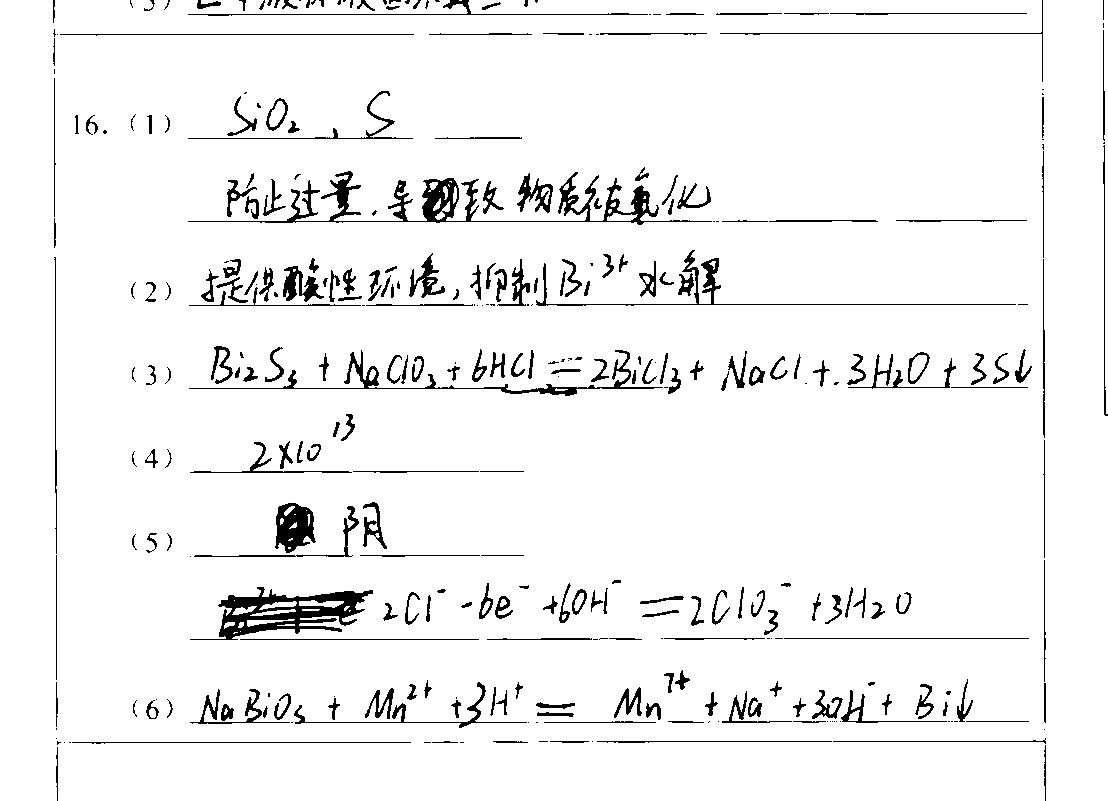 (3)
16. (1) SiO₂、S
防止过量,导致物质被氧化
(2) 提供酸性环境,抑制Bi³⁺水解
(3) Bi₂S₃ + NaClO₃ + 6HCl = 2BiCl₃ + NaCl + 3H₂O + 3S↓
(4) 2×10¹³
(5) 阴
2Cl⁻ -6e⁻ +6OH⁻ = 2ClO₃⁻ +3H₂O
(6) NaBiO₃ + Mn²⁺ +3H⁺ = Mn⁷⁺ + Na⁺ +3OH⁻ + Bi↓